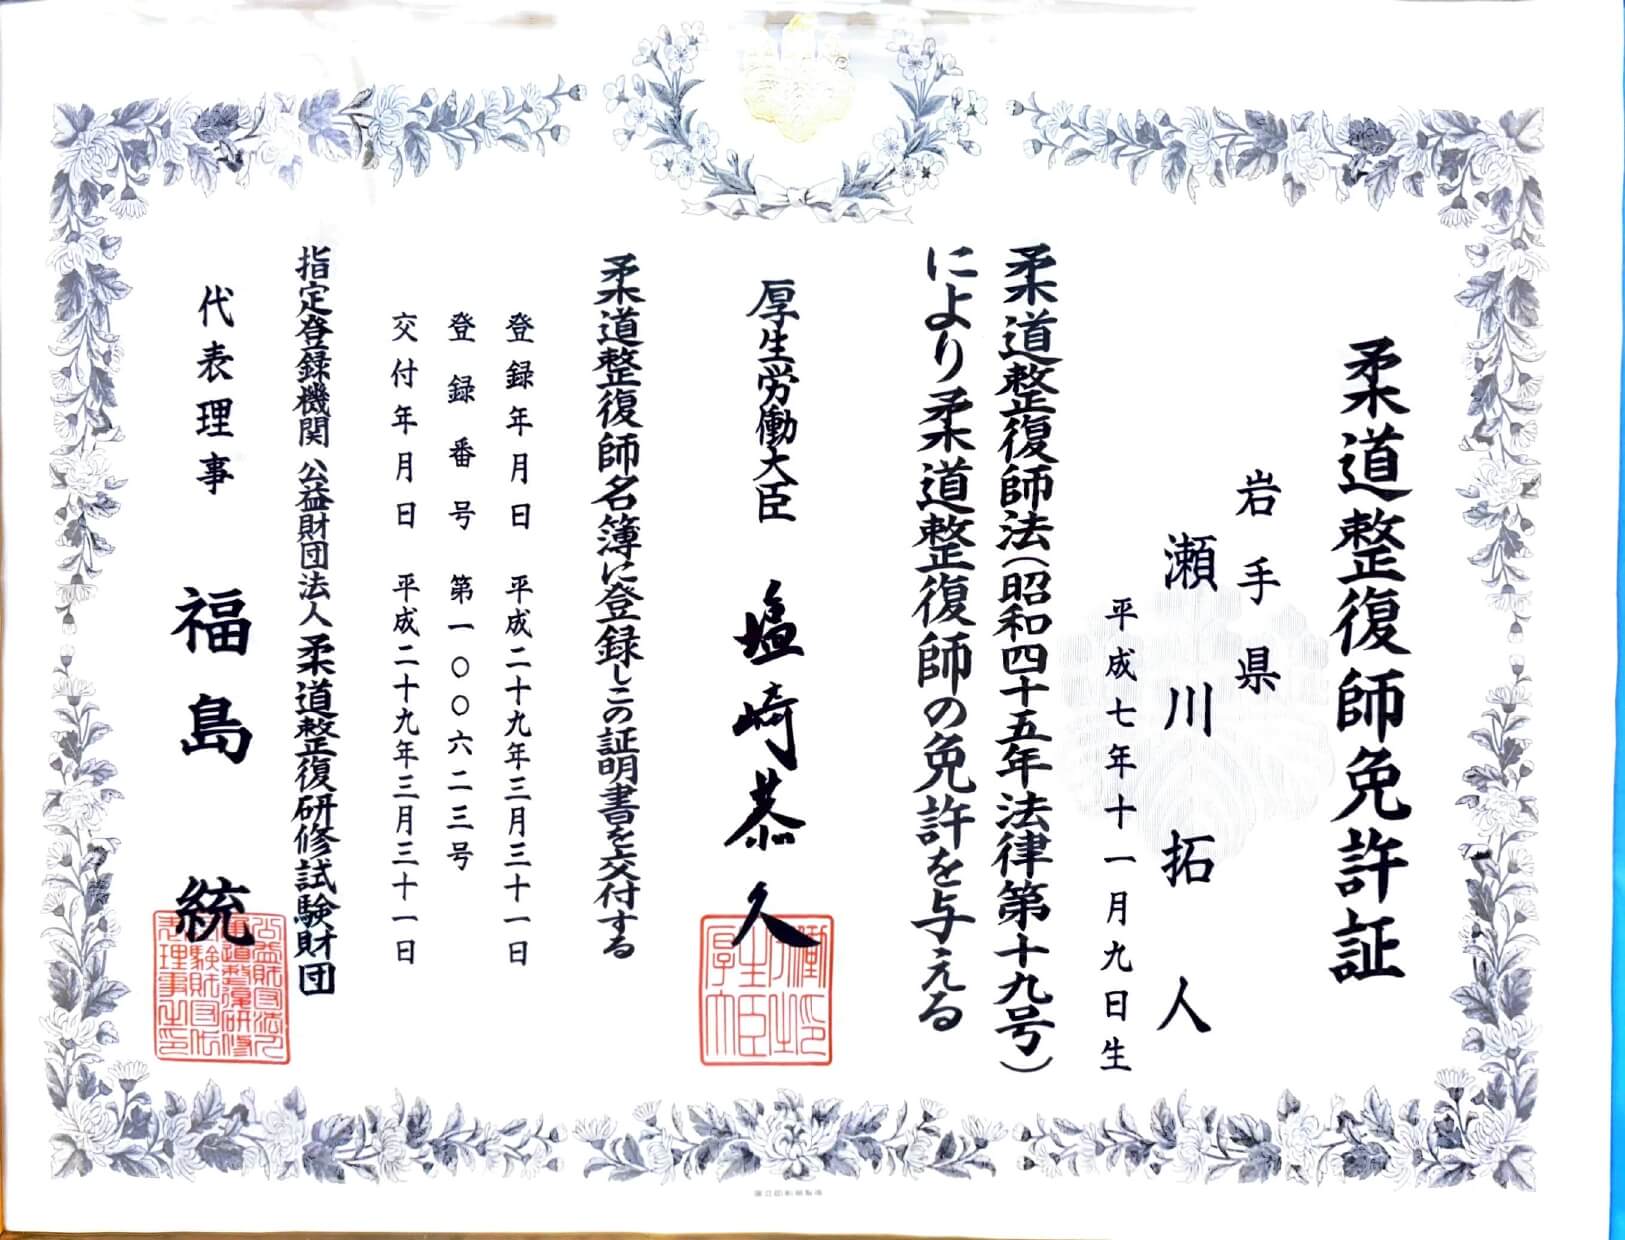 柔道整復師免許証
岩手県
瀬川拓人
平成七年十一月九日生
柔道整復師法(昭和四十五年法律第十九号)
により柔道整復師の免許を与える
厚生労働大臣 塩崎恭久
柔道整復師名簿に登録しこの証明書を交付する
登録年月日 平成二十九年三月三十一日
登録番号 第一〇〇六二三号
交付年月日 平成二十九年三月三十一日
指定登録機関 公益財団法人 柔道整復研修試験財団
代表理事 福島統